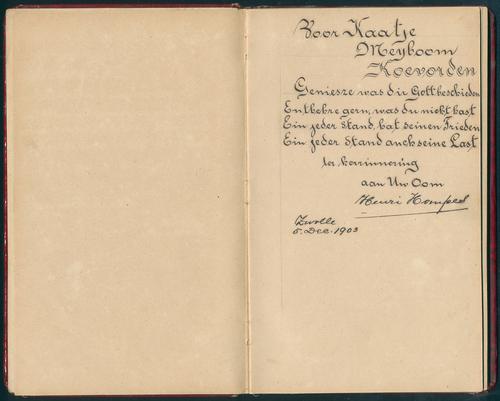 Voor Kaatje
Meyboom
Koevorden
Geniesze was dir Gott beschieden
Entbehre gern, was du nicht hast
Ein jeder Stand, hat seinen Frieden
Ein jeder Stand auch seine Last
ter herrinnering
aan Uw Oom
Henri
Zwolle
5 Dec. 1903